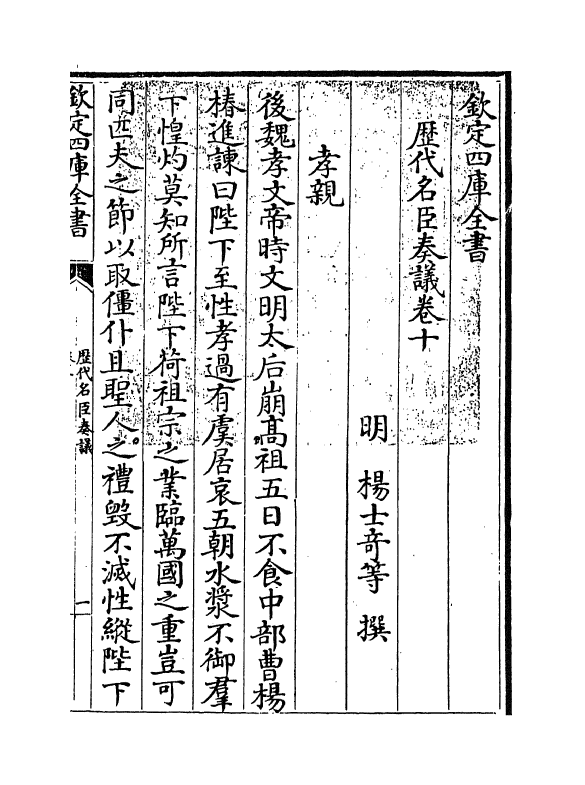 欽定四庫全書
歷代名臣奏議卷十
明 楊士奇等 撰
孝親
後魏孝文帝時文明太后崩高祖五日不食中部曹楊
椿進諫曰陛下至性孝過有虞居哀五朝水漿不御羣
下惶灼莫知所言陛下荷祖宗之業臨萬國之重豈可
同匹夫之節以取僵仆且聖人之禮毀不滅性縱陛下
欽定四庫全書
歷代名臣奏議
一